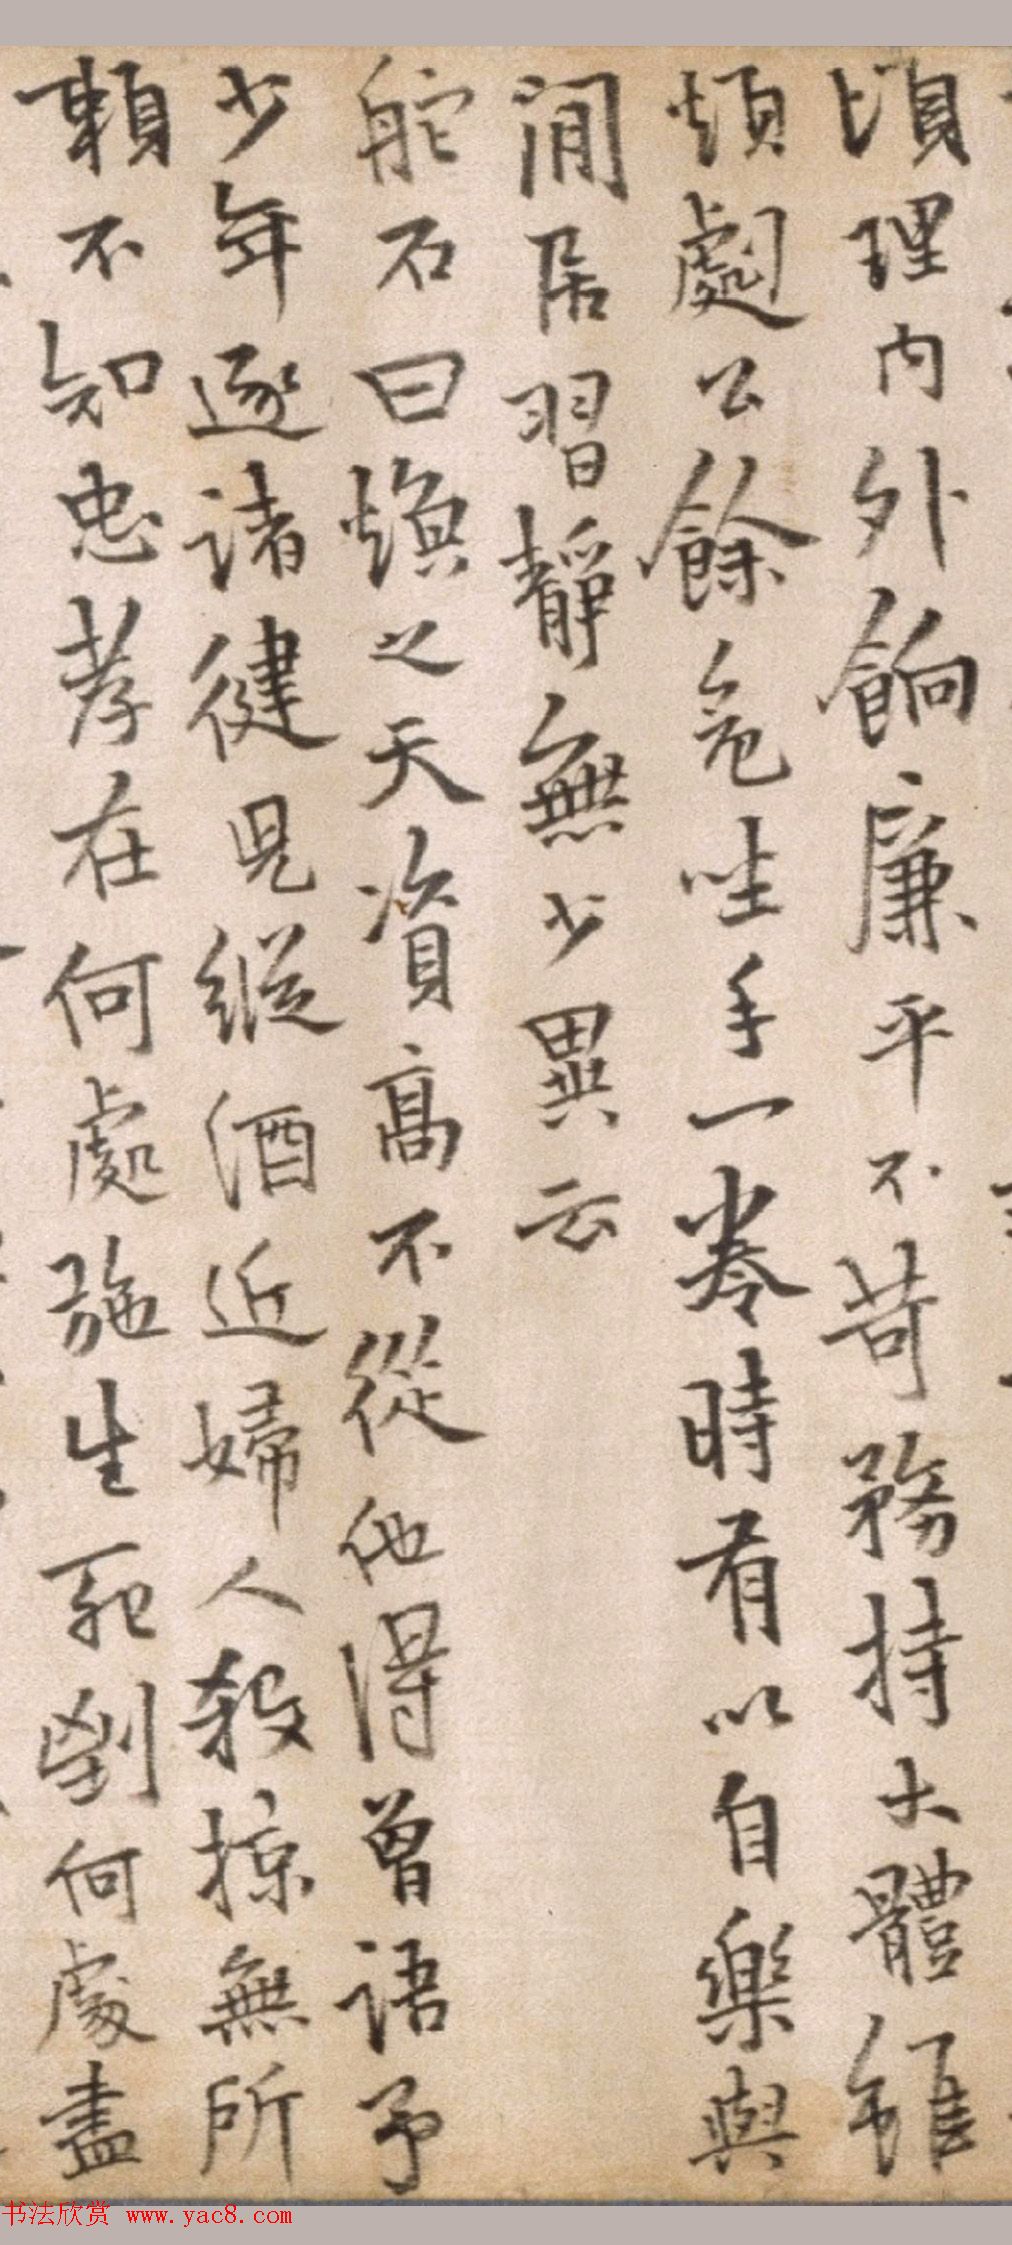 須理內外餉廉平不苛務持大體雖
煩劇公餘危坐手一卷時有以自樂與
閒居習靜無少異云
舵石曰煥之天資高不從他得曾語予
少年逐諸健兒縱酒近婦人殺掠無所
賴不知忠孝在何處施生死劉何處盡
书法欣赏 www.yac8.com